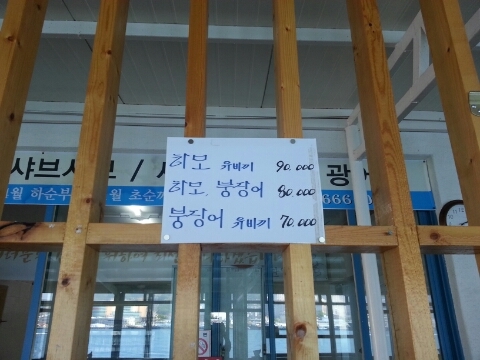 샤브샤브 /
광
월 하순부
월 초순까
666
하모 유비끼 90,000
하모, 붕장어 80,000
붕장어 유비끼 70,000